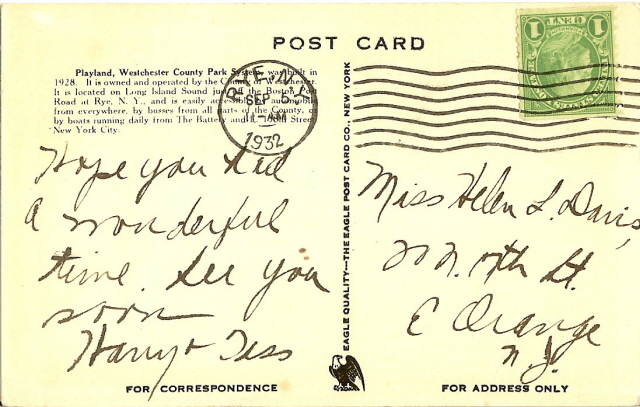 POST CARD
Playland, Westchester County Park System, was built in
1928. It is owned and operated by the County of Westchester.
It is located on Long Island Sound just off the Boston Post
Road at Rye, N. Y., and is easily accessible by automobile
from everywhere, by busses from all parts of the County, or
by boats running daily from The Battery and Street
New York City.
RYE N.Y.
SEP 6
11-AM
1932
1 CENT 1
Hope you had
a wonderful
time. See you
soon
Harry + Tess
EAGLE QUALITY—THE EAGLE POST CARD CO., NEW YORK
Miss Helen L. Davis,
N. St.
E Orange
N.J.
FOR CORRESPONDENCE
FOR ADDRESS ONLY